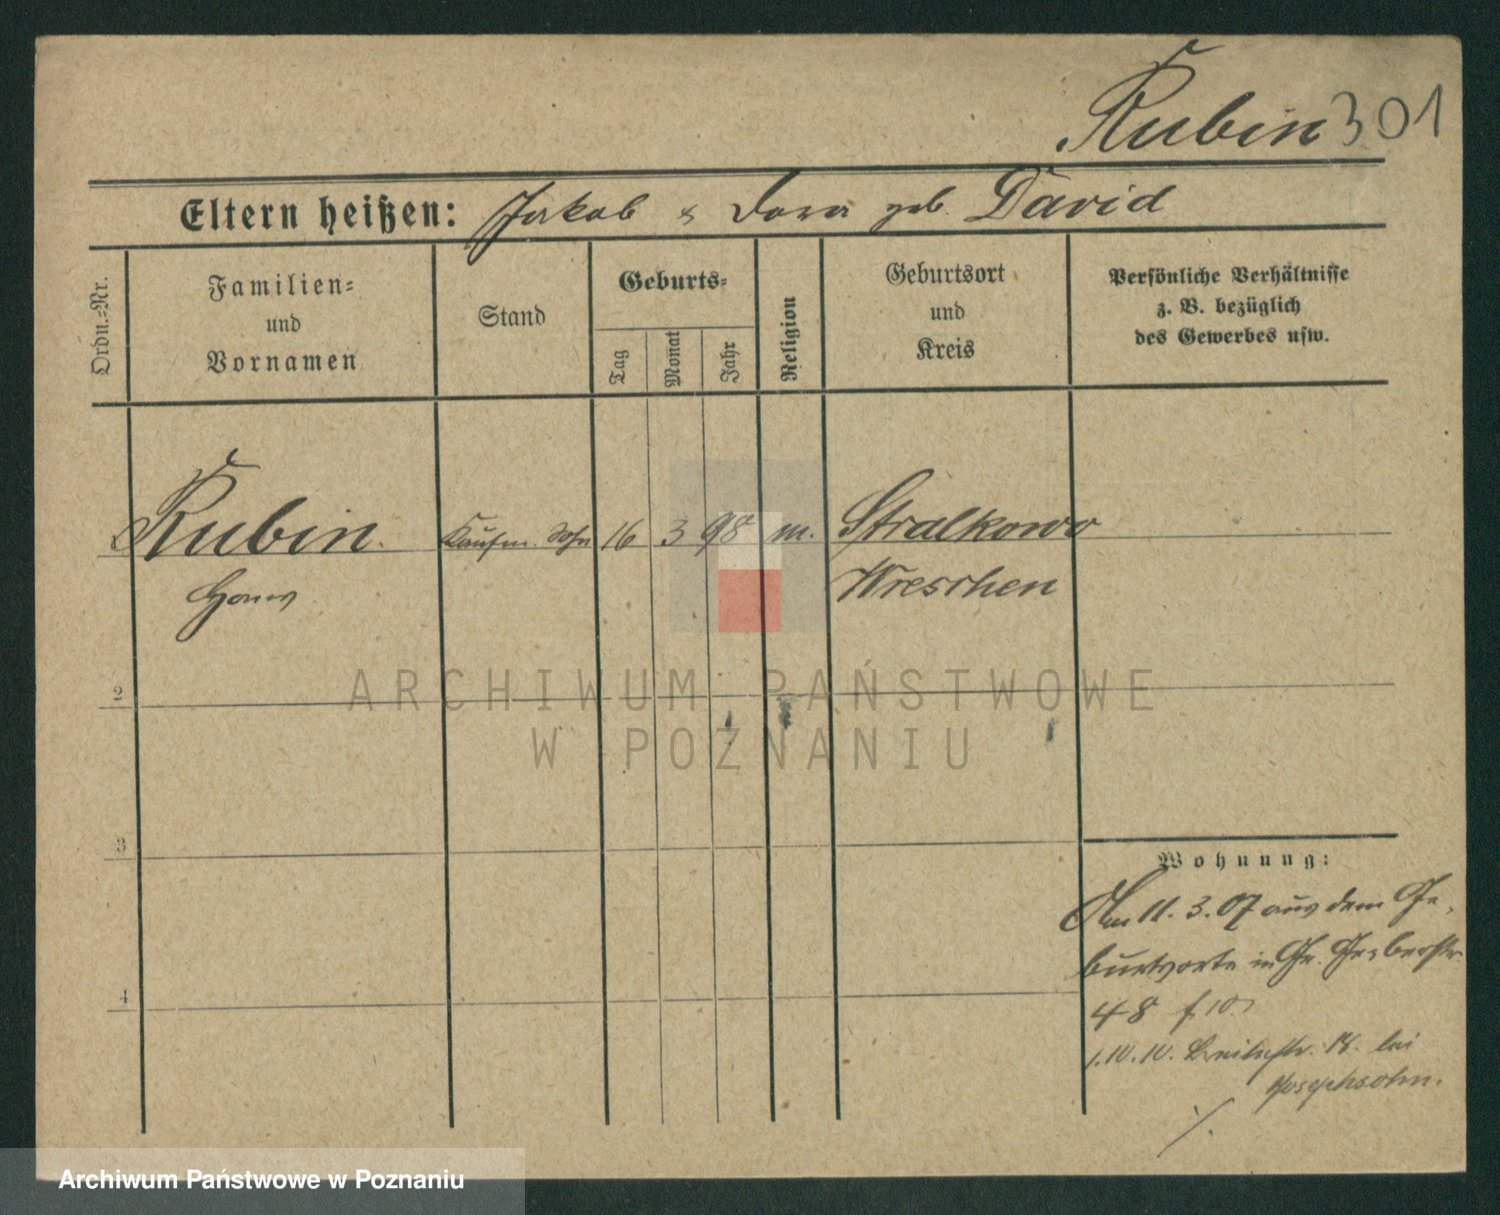 Rubin 301
Eltern heißen: Jakob & Dora geb. David
Ordn.-Nr.
Familien-
und
Vornamen
Stand
Geburts-
Tag
Monat
Jahr
Religion
Geburtsort
und
Kreis
Persönliche Verhältnisse
z. B. bezüglich
des Gewerbes usw.
Rubin Kaufm. Sohn 16 3 98 m. Stralkowo
Hans Wreschen
2
ARCHIWUM PAŃSTWOWE
W POZNANIU
3
4
Wohnung:
Am 11. 3. 07 aus dem Ge-
burtsorte in Gr. Gerberstr.
48
1.10.10. Breitestr. 18. bei
Josephsohn.
Archiwum Państwowe w Poznaniu